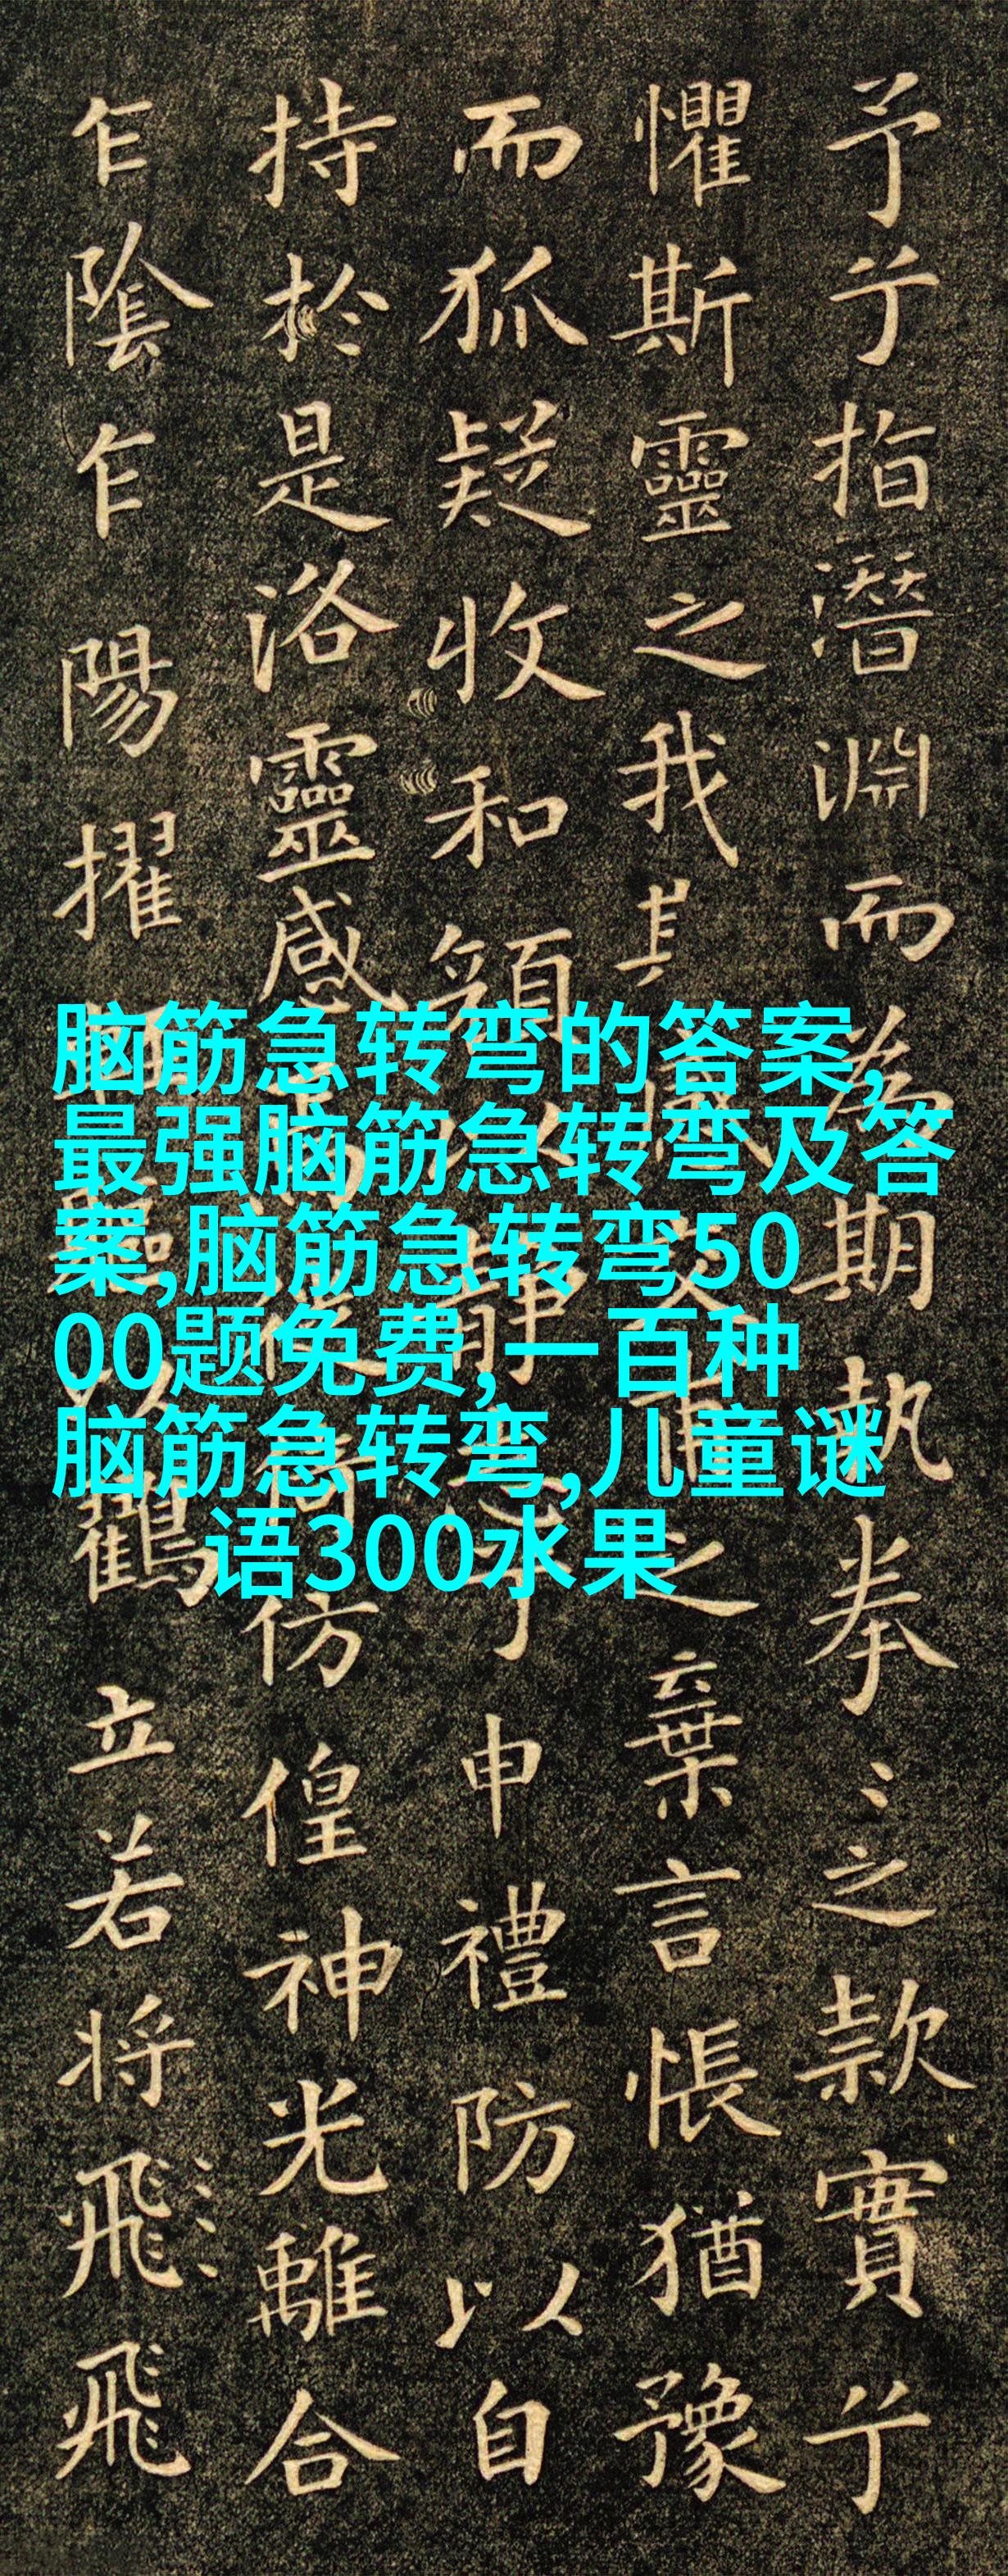 予兮指潛淵而為期執拳〻之款實兮
懼斯靈之我其感交甫之棄言悵猶豫
而狐疑收和顏以靜志兮申禮防以自
持於是洛靈感焉徙倚仿偟神光離合
乍陰乍陽擢輕軀以鶴立若將飛飛
脑筋急转弯的答案,
最强脑筋急转弯及答
案,脑筋急转弯50
00题免费,一百种
脑筋急转弯,儿童谜
语300水果